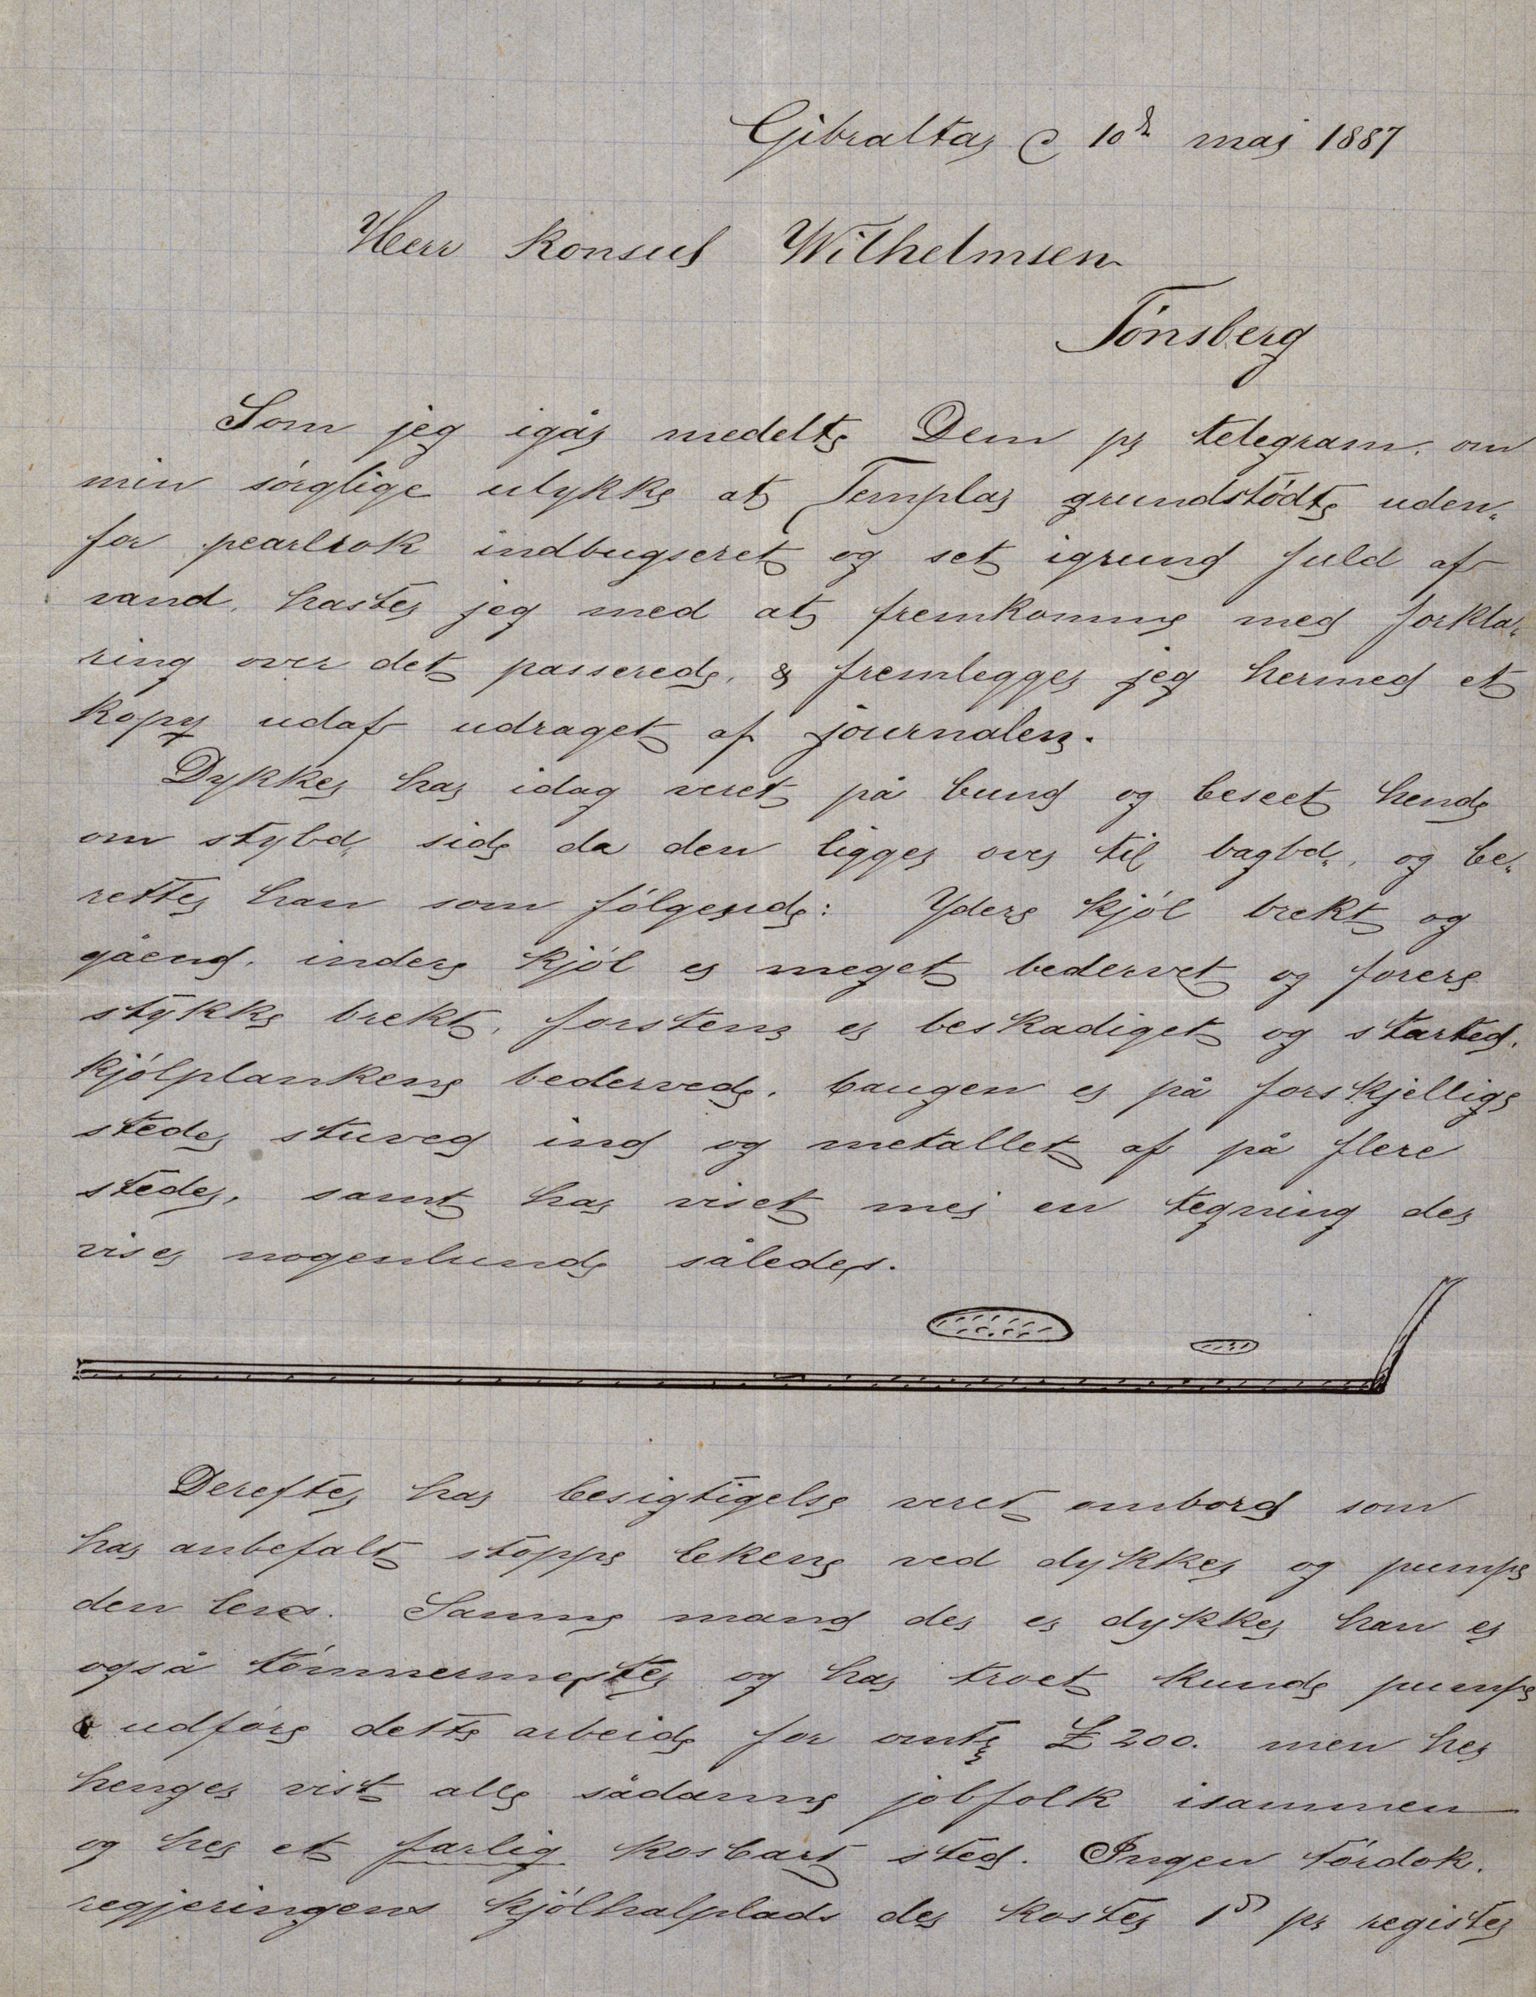 Gibraltar d 10de mai 1887
Herr Konsul Wilhelmsen
Tönsberg
Som jeg igår medelte Dem pr telegram, om
min sörglige ulykke at Templar grundstödte uden„
for pearlrok indbugseret og set igrund fuld af
vand, haster jeg med at fremkomme med forkla„
ring over det passerede, & fremlegger jeg hermed et
kopy udaf udraget af journalen.
Dykker har idag veret på bund og beseet hende
om stybd„ side da den ligger over til bagbd„, og be„
retter han som fölgende: Ydere kjöl brekt og
gåend. indere kjöl er meget bedervet og forere
stykke brekt, forstene er beskadiget og started.
kjölplankene bedervede. baugen er på forskjellige
steder stuved ind og metallet af på flere
steder, samt har viset mei en tegning der
viser nogenlunde således.
Derefter har besigtigelse veret ombord som
har anbefalt stoppe lekene ved dykker og pumpe
den lens. Samme mand der er dykker han er
også tömmermester og har troet kunde pumpe
& udföre dette arbeide for omtr £ 200. men her
henger vist alle sådanne jobfolk isammen
og her et farlig kosbart sted. Ingen tördok.
regjeringens kjölhalplads der koster 1 D pr register